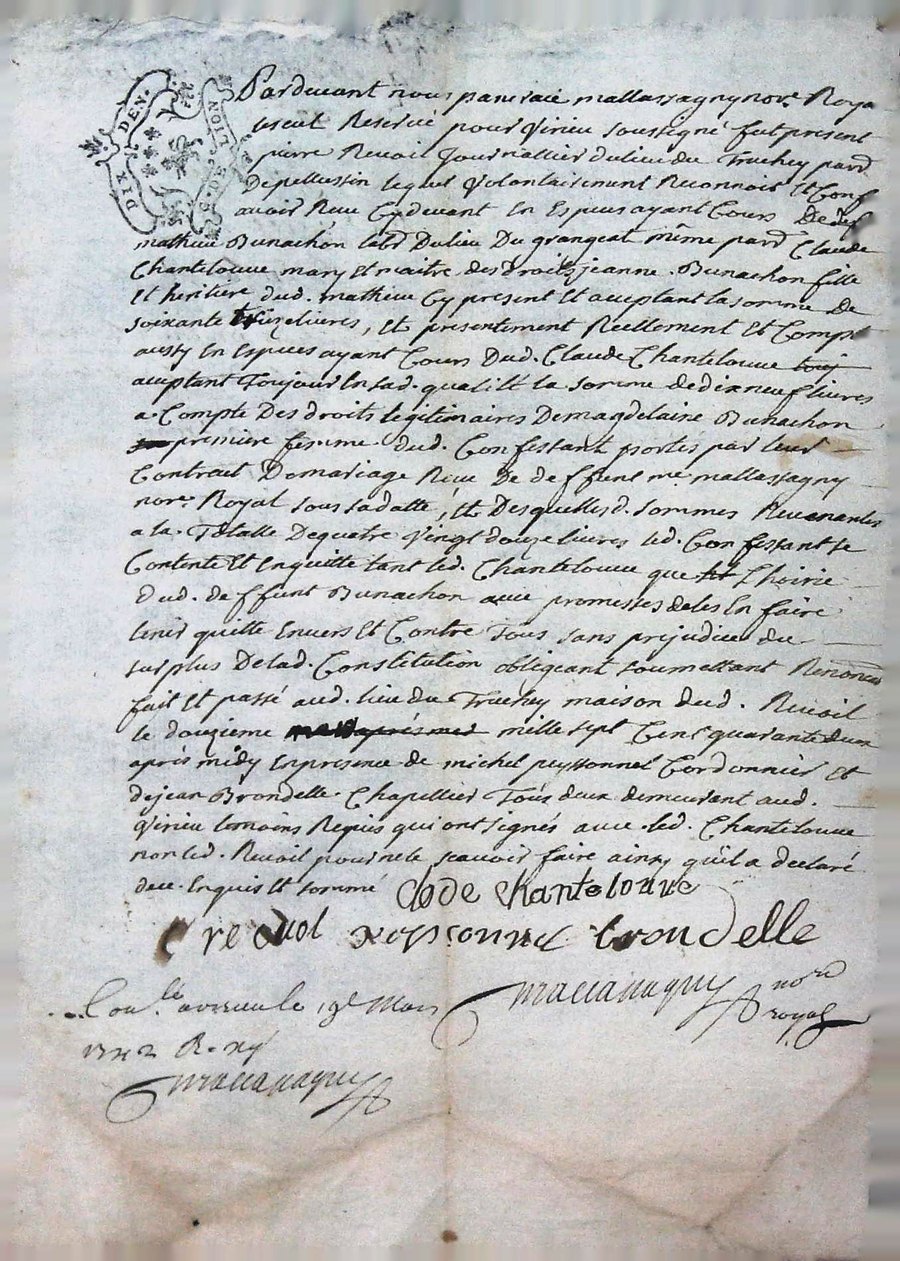 DIX DEN.
G. DE LION
Pardevant nous pancrace mallassagny nore. Roya
Reservé pour virieu soussigné fut present
pierre Revoil Journallier du lieu du Truchey parr.
De pellussin lequel volontairement Reconnoit Et Conf
avoir Reçu Cydevant En Especes ayant Cours De def
mathieu Bunachon labr Du lieu Du grangeat même parr. Claude
Chantelouve mary Et maitre des Droits jeanne Bunachon fille
Et heritiere dud. mathieu Cy present Et aceptant la somme de
soixante treize livres, Et presentement Réellement Et Compt
aussy En Especes ayant Cours Dud. Claude Chantelouve touj
aceptant Toujour En sad. qualité la somme de dix neuf livres
a Compte Des droits legitimaires De magdelaine Bunachon
premiere femme dud. Confessant portés par leur
Contrait De mariage Reçu De deffunt me. mallassagny
nore. Royal sous sa datte, Et Desquelles d. sommes Revenantes
a la Totalle De quatre vingt douze livres led. Confessant se
Contente Et En quitte tant led. Chantelouve que lhoirie
dud. deffunt Bunachon avec promesses de les En faire
tenir quitte Envers Et Contre Tous sans prejudice du
surplus De lad. Constitution obligeant soumettant Renoncan
fait Et passé aud. lieu du Truchey maison dud. Revoil
le douzieme mars après midi mille sept Cent quarante deux
après midy En presence de michel peyssonnel Cordonnier Et
de jean Brondelle Chapellier Tous deux demeurant aud.
Virieu temoins Requis qui ont signés avec led. Chantelouve
non led. Revoil pour ne le sçavoir faire ainsy qu'il a declaré
de ce Enquis Et sommé
clode chantelouve
peyssonnel brondelle
mallassagny nore
royal
Con.le a virieu le 19e Mars
1742 R.
mallassagny